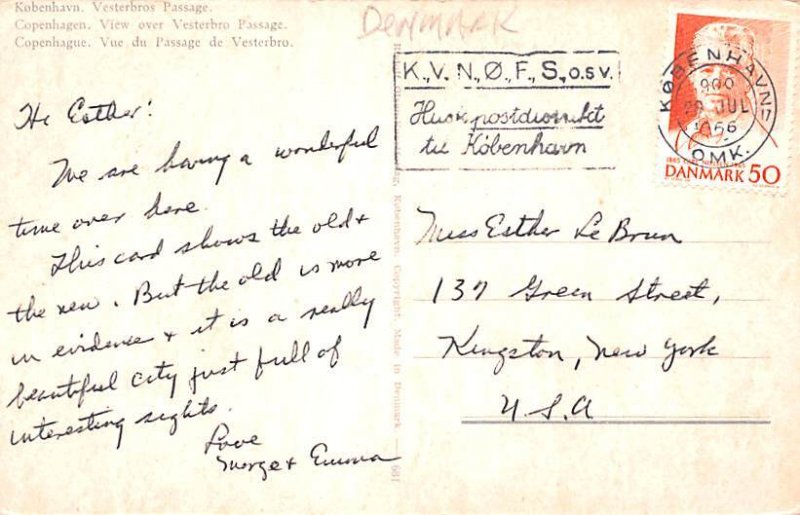 København. Vesterbros Passage.
Copenhagen. View over Vesterbro Passage.
Copenhague. Vue du Passage de Vesterbro.
DENMARK
Hi Esther!
We are having a wonderful
time over here.
This card shows the old +
the new. But the old is more
in evidence + it is a really
beautiful city just full of
interesting sights.
Love
George + Emma
København. Copyright. Made in Denmark — 681
K., V., N., Ø., F., S., o.s.v.
Husk postdistrikt
til København
KØBENHAVN 17
900
JUL
1966
OMK.
DANMARK 50
Miss Esther Le Brun
137 Green Street,
Kingston, New York
U.S.A